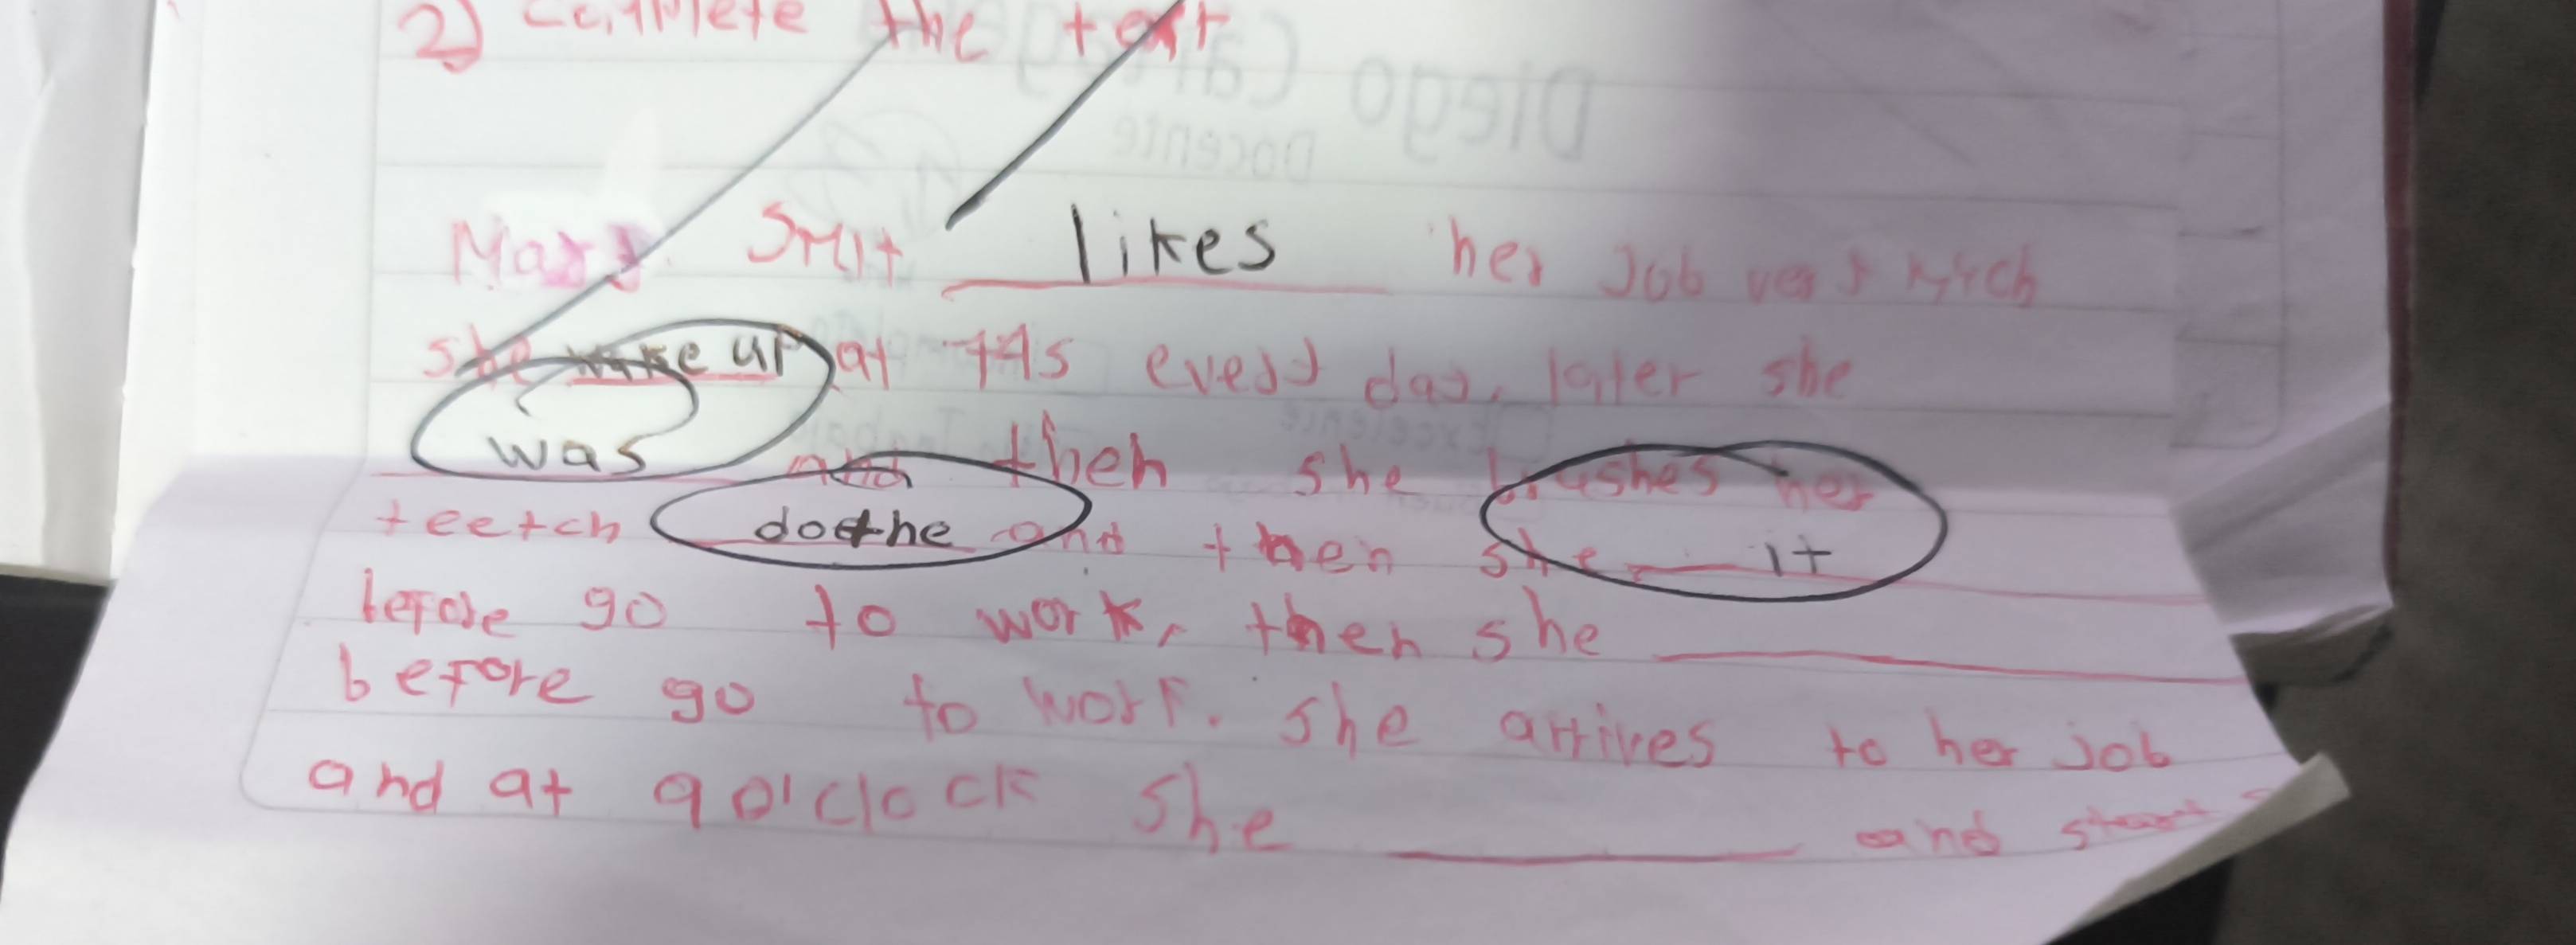 2) complete the text
Mary Smit likes her Job very much
she wake up at 745 every day, later she
was and then she brushes her
teetch doethe and then she it
before go to work, then she
before go to work. She arrives to her job
and at 9 o'clock She and start